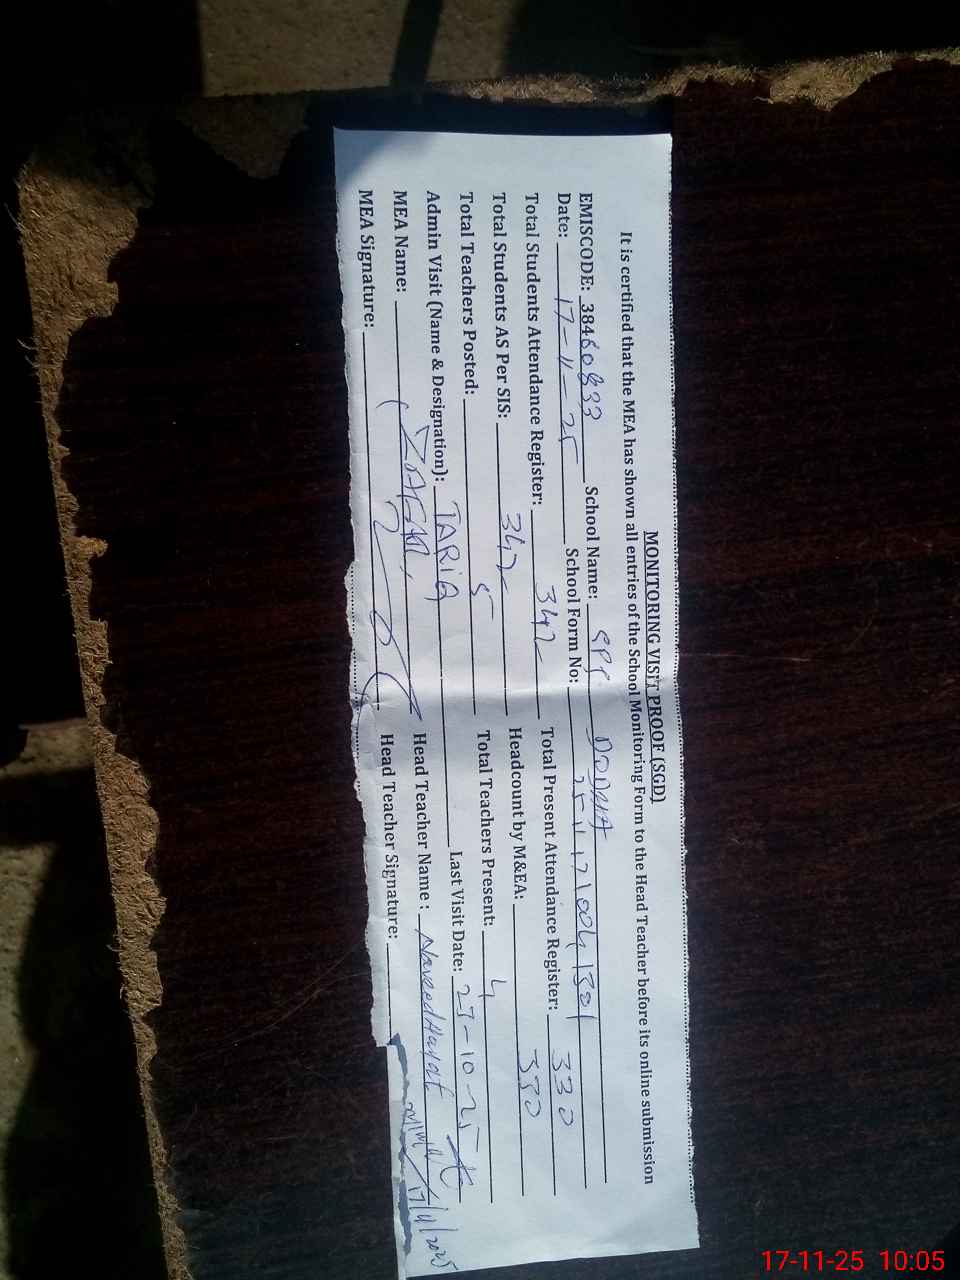 MONITORING VISIT PROOF (SGD)
It is certified that the MEA has shown all entries of the School Monitoring Form to the Head Teacher before its online submission
EMISCODE: 38460833 School Name: GPS DODHA
Date: 17-11-25 School Form No: 25-11-1710041301
Total Students Attendance Register: 342 Total Present Attendance Register: 330
Total Students AS Per SIS: 342 Headcount by M&EA: 330
Total Teachers Posted: 5 Total Teachers Present: 4
Admin Visit (Name & Designation): TARIQ Last Visit Date: 27-10-25
MEA Name: Head Teacher Name: Naveed Hayat
MEA Signature: Head Teacher Signature: 17/11/2025
17-11-25 10:05